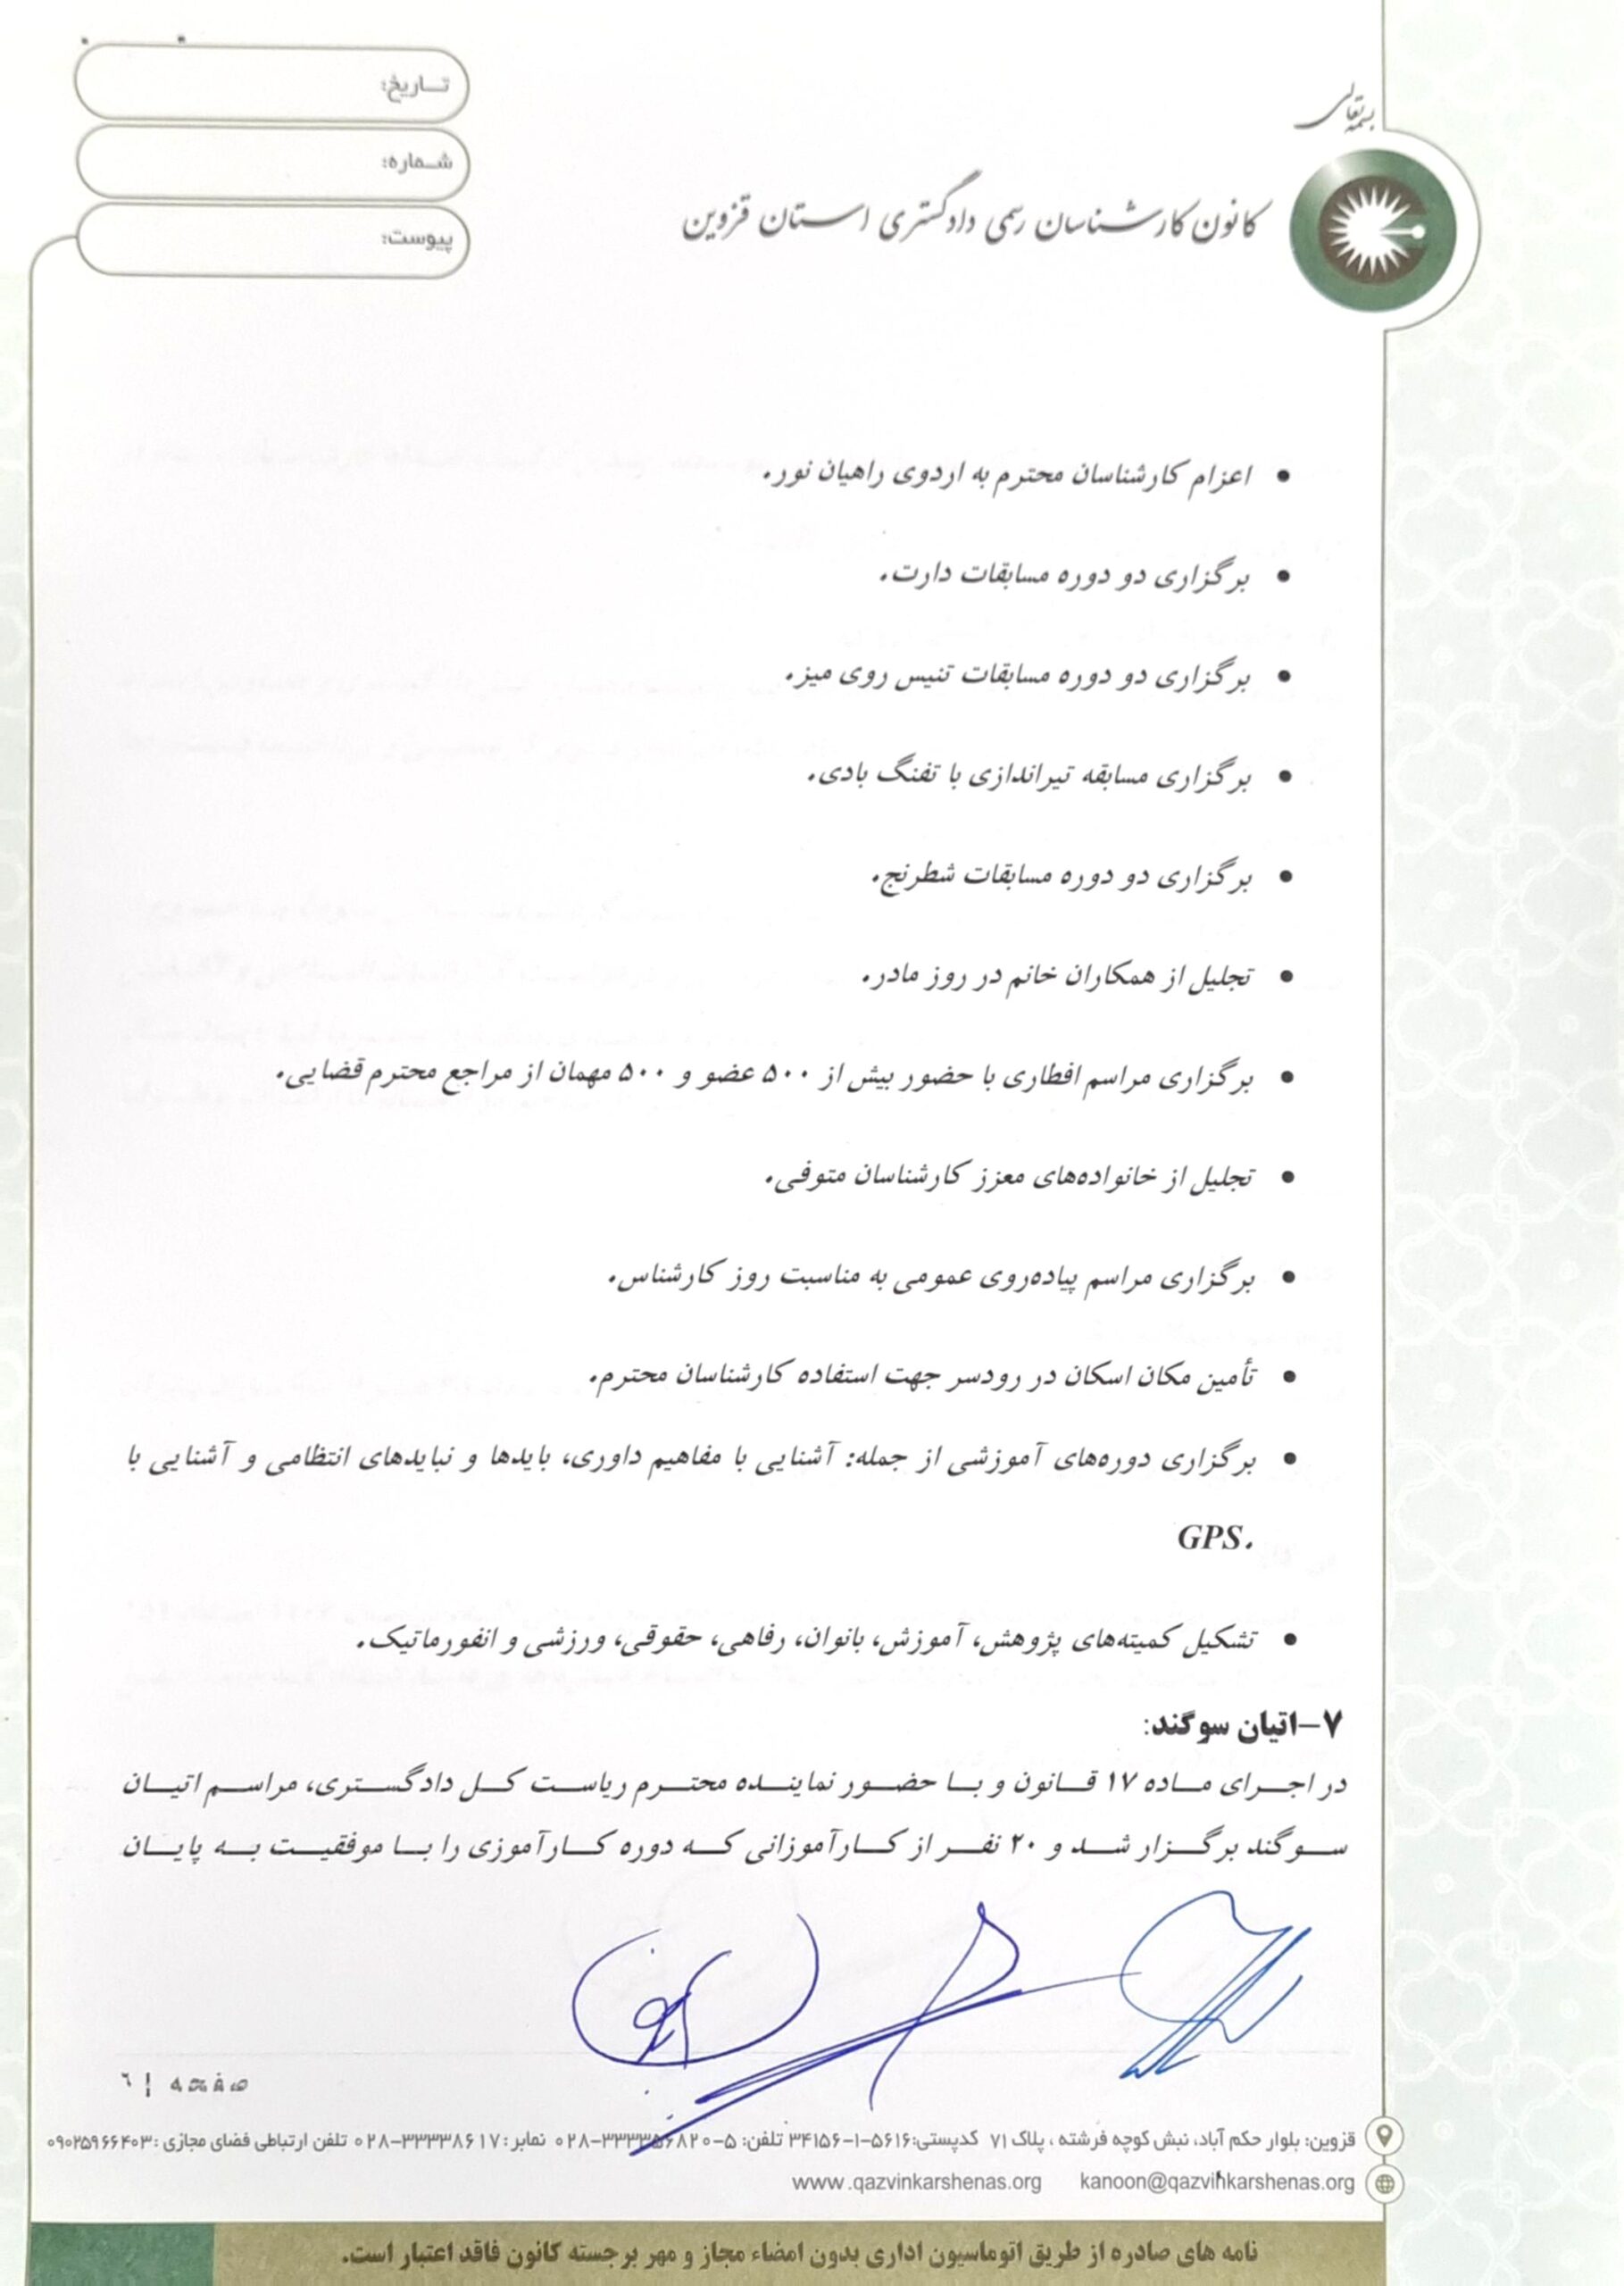 بسمه تعالی
تـاریخ:
شـماره:
پیوست:
کانون کارشناسان رسمی دادگستری استان قزوین
• اعزام کارشناسان محترم به اردوی راهیان نور.
• برگزاری دو دوره مسابقات دارت.
• برگزاری دو دوره مسابقات تنیس روی میز.
• برگزاری مسابقه تیراندازی با تفنگ بادی.
• برگزاری دو دوره مسابقات شطرنج.
• تجلیل از همکاران خانم در روز مادر.
• برگزاری مراسم افطاری با حضور بیش از ۵۰۰ عضو و ۵۰۰ مهمان از مراجع محترم قضایی.
• تجلیل از خانواده‌های معزز کارشناسان متوفی.
• برگزاری مراسم پیاده‌روی عمومی به مناسبت روز کارشناس.
• تأمین مکان اسکان در رودسر جهت استفاده کارشناسان محترم.
• برگزاری دوره‌های آموزشی از جمله: آشنایی با مفاهیم داوری، بایدها و نبایدهای انتظامی و آشنایی با
GPS.
• تشکیل کمیته‌های پژوهش، آموزش، بانوان، رفاهی، حقوقی، ورزشی و انفورماتیک.
۷-اتیان سوگند:
در اجرای ماده ۱۷ قانون و با حضور نماینده محترم ریاست کل دادگستری، مراسم اتیان
سوگند برگزار شد و ۲۰ نفر از کارآموزانی که دوره کارآموزی را با موفقیت به پایان
صفحه | ٦
قزوین: بلوار حکم آباد، نبش کوچه فرشته ، پلاک ۷۱ کدپستی:۵۶۱۶-۱-۳۴۱۵۶ تلفن: ۵-۳۳۳۵۶۸۲۰-۰۲۸ نمابر: ۳۳۳۳۸۶۱۷-۰۲۸ تلفن ارتباطی فضای مجازی :۰۹۰۲۵۹۶۶۴۰۳
www.qazvinkarshenas.org kanoon@qazvinkarshenas.org
نامه های صادره از طریق اتوماسیون اداری بدون امضاء مجاز و مهر برجسته کانون فاقد اعتبار است.